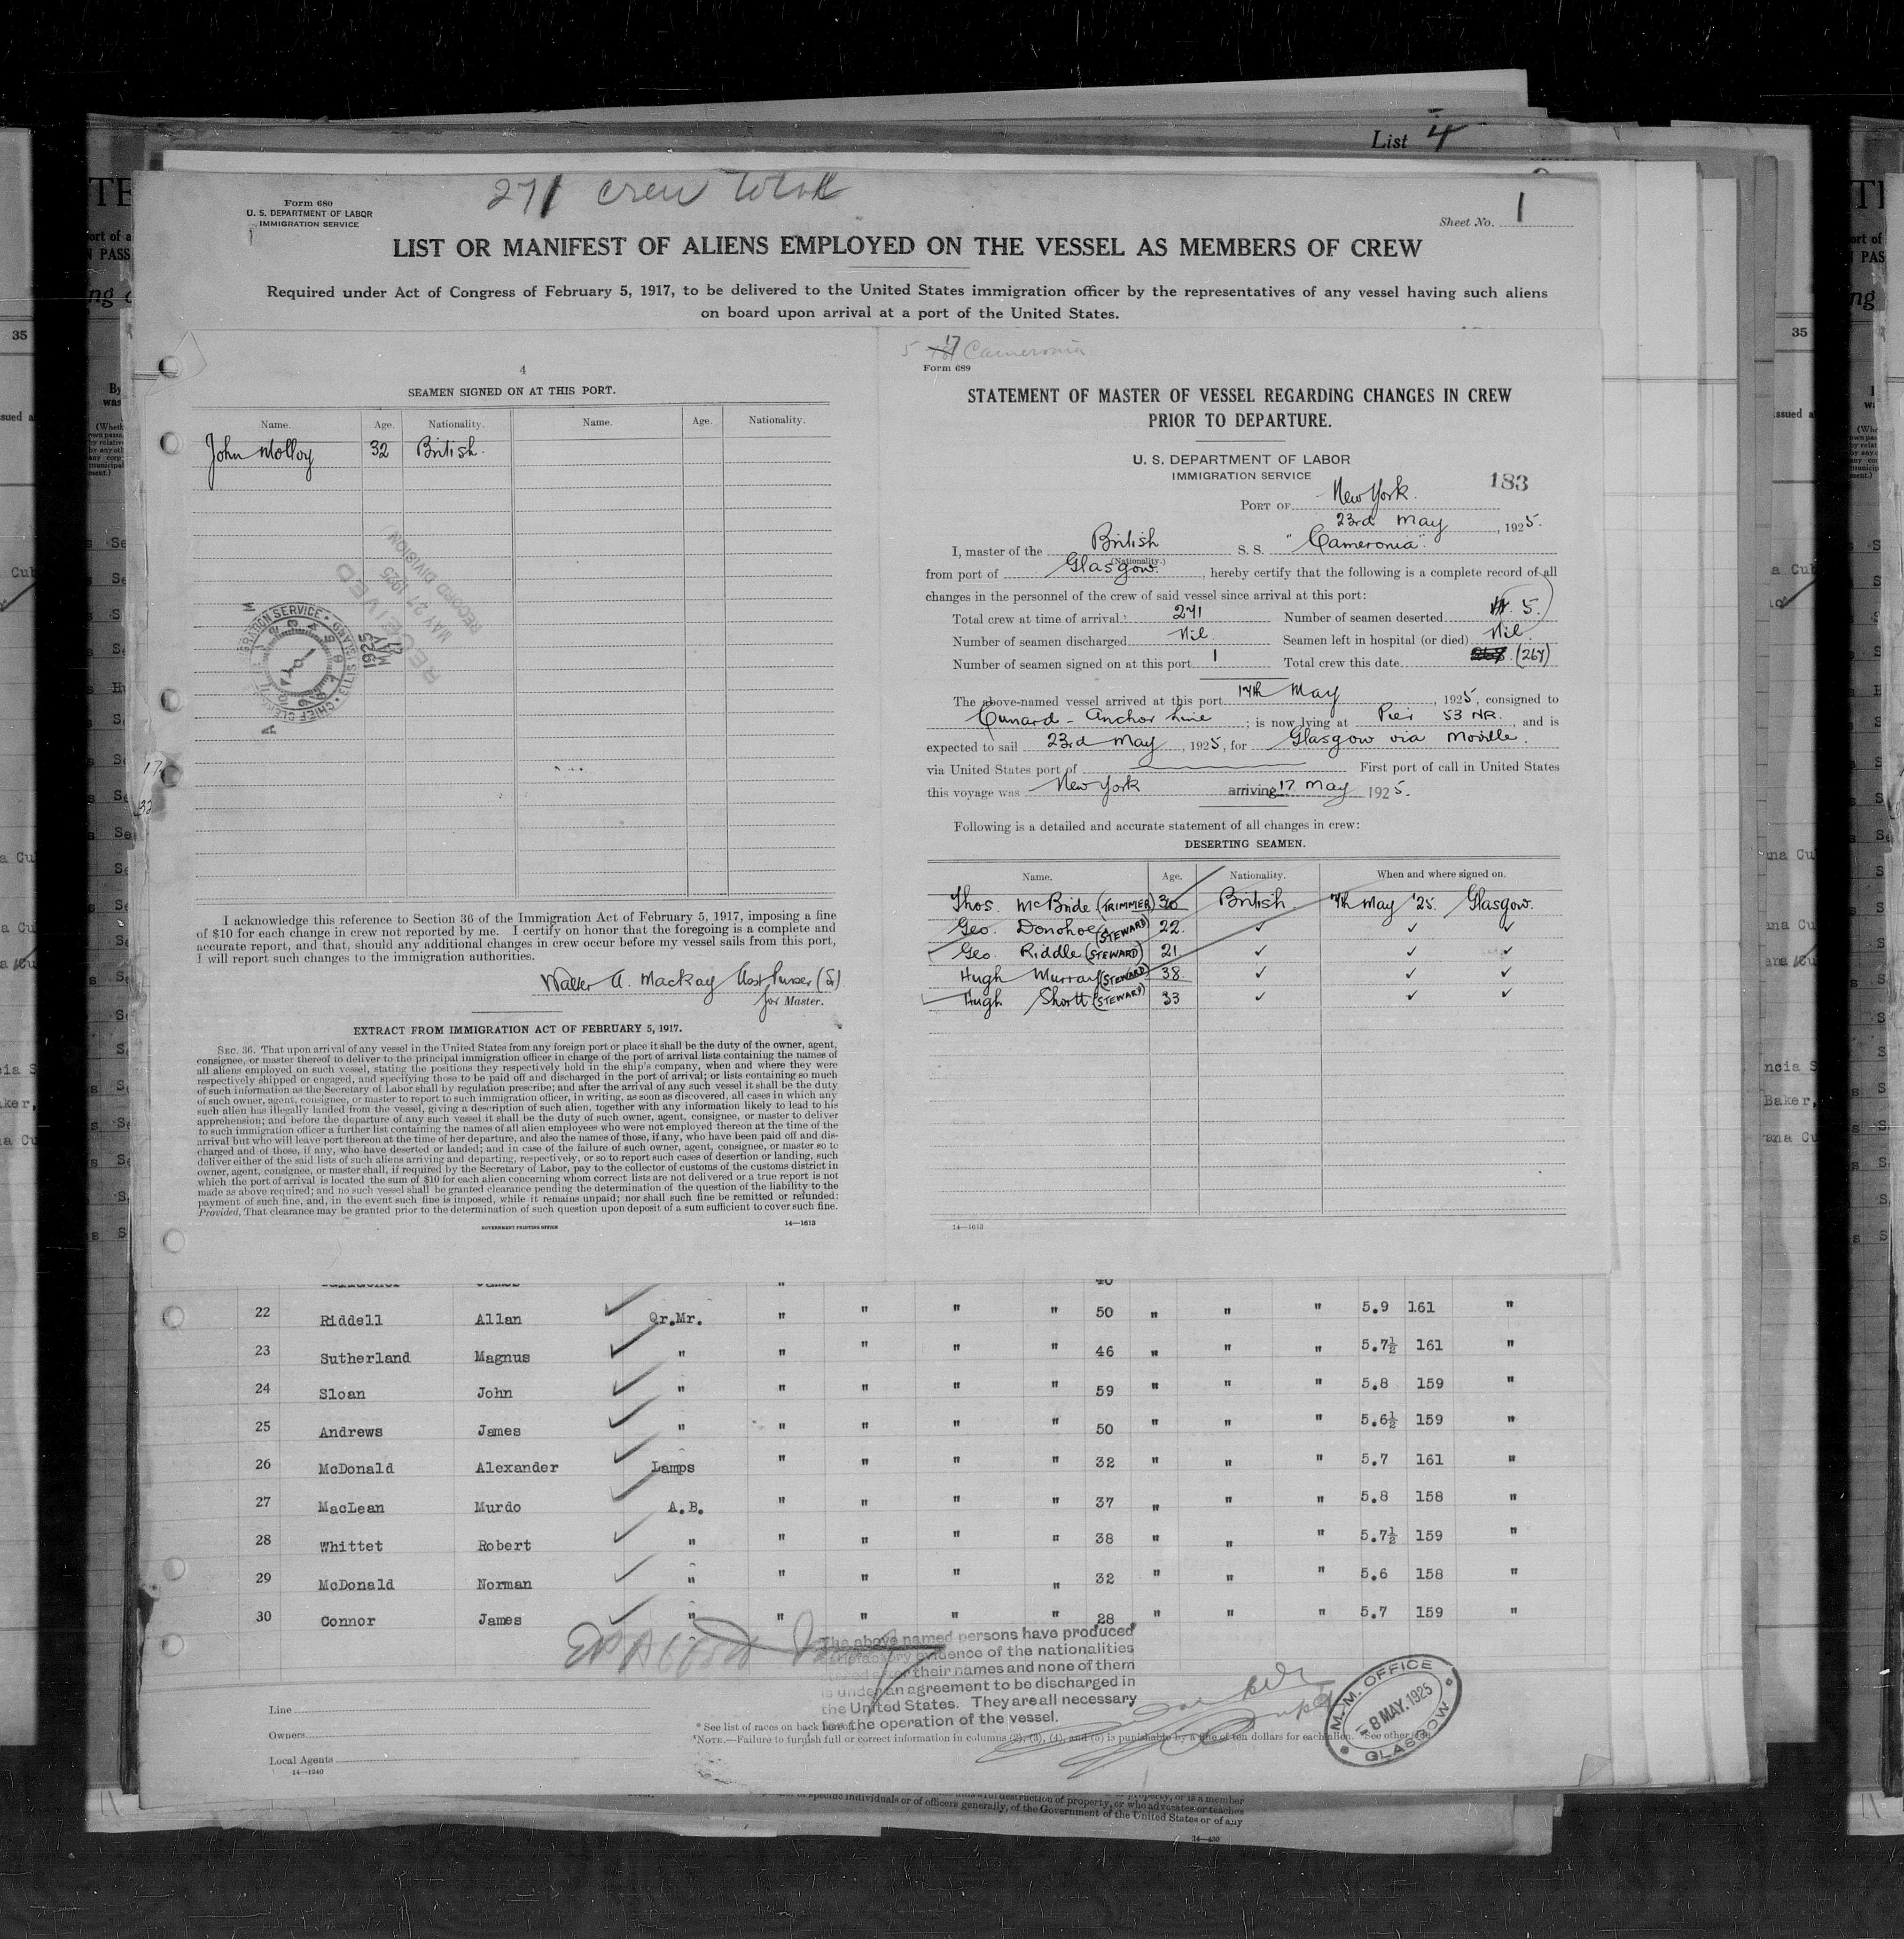 List 4
271 crew total
Form 680
U. S. DEPARTMENT OF LABOR
IMMIGRATION SERVICE
Sheet No. 1
LIST OR MANIFEST OF ALIENS EMPLOYED ON THE VESSEL AS MEMBERS OF CREW
Required under Act of Congress of February 5, 1917, to be delivered to the United States immigration officer by the representatives of any vessel having such aliens
on board upon arrival at a port of the United States.
4
SEAMEN SIGNED ON AT THIS PORT.
Name. Age. Nationality. Name. Age. Nationality.
John Molloy 32 British.
RECEIVED
MAY 27 1925
RECORD DIVISION
I acknowledge this reference to Section 36 of the Immigration Act of February 5, 1917, imposing a fine
of $10 for each change in crew not reported by me. I certify on honor that the foregoing is a complete and
accurate report, and that, should any additional changes in crew occur before my vessel sails from this port,
I will report such changes to the immigration authorities.
Walter A. Mackay Asst Purser (S).
for Master.
EXTRACT FROM IMMIGRATION ACT OF FEBRUARY 5, 1917.
SEC. 36. That upon arrival of any vessel in the United States from any foreign port or place it shall be the duty of the owner, agent,
consignee, or master thereof to deliver to the principal immigration officer in charge of the port of arrival lists containing the names of
all aliens employed on such vessel, stating the positions they respectively hold in the ship's company, when and where they were
respectively shipped or engaged, and specifying those to be paid off and discharged in the port of arrival; or lists containing so much
of such information as the Secretary of Labor shall by regulation prescribe; and after the arrival of any such vessel it shall be the duty
of such owner, agent, consignee, or master to report to such immigration officer, in writing, as soon as discovered, all cases in which any
such alien has illegally landed from the vessel, giving a description of such alien, together with any information likely to lead to his
apprehension; and before the departure of any such vessel it shall be the duty of such owner, agent, consignee, or master to deliver
to such immigration officer a further list containing the names of all alien employees who were not employed thereon at the time of the
arrival but who will leave port thereon at the time of her departure, and also the names of those, if any, who have been paid off and dis-
charged and of those, if any, who have deserted or landed; and in case of the failure of such owner, agent, consignee, or master so to
deliver either of the said lists of such aliens arriving and departing, respectively, or so to report such cases of desertion or landing, such
owner, agent, consignee, or master shall, if required by the Secretary of Labor, pay to the collector of customs of the customs district in
which the port of arrival is located the sum of $10 for each alien concerning whom correct lists are not delivered or a true report is not
made as above required; and no such vessel shall be granted clearance pending the determination of the question of the liability to the
payment of such fine, and, in the event such fine is imposed, while it remains unpaid; nor shall such fine be remitted or refunded:
Provided, That clearance may be granted prior to the determination of such question upon deposit of a sum sufficient to cover such fine.
GOVERNMENT PRINTING OFFICE 14—1613
5 17 Cameronia
Form 689
STATEMENT OF MASTER OF VESSEL REGARDING CHANGES IN CREW
PRIOR TO DEPARTURE.
U. S. DEPARTMENT OF LABOR
IMMIGRATION SERVICE
183
PORT OF New York.
23rd May, 1925.
I, master of the British S. S. "Cameronia".
(Nationality.)
from port of Glasgow., hereby certify that the following is a complete record of all
changes in the personnel of the crew of said vessel since arrival at this port:
Total crew at time of arrival: 271 Number of seamen deserted 5.
Number of seamen discharged Nil. Seamen left in hospital (or died) Nil.
Number of seamen signed on at this port 1 Total crew this date (267)
The above-named vessel arrived at this port 17th May, 1925, consigned to
Cunard - Anchor Line; is now lying at Pier 53 NR., and is
expected to sail 23rd May, 1925, for Glasgow via Moville.
via United States port of First port of call in United States
this voyage was New York arriving 17 May 1925.
Following is a detailed and accurate statement of all changes in crew:
DESERTING SEAMEN.
Name. Age. Nationality. When and where signed on.
Thos. McBride (TRIMMER) 30 British. 7th May '25. Glasgow.
Geo. Donohoe (STEWARD) 22. ✓ ✓ ✓
Geo. Riddle (STEWARD) 21. ✓ ✓ ✓
Hugh Murray (STEWARD) 38 ✓ ✓ ✓
Hugh Shortt (STEWARD) 33 ✓ ✓ ✓
14—1613
22 Riddell Allan Qr.Mr. " " " " 50 " " " 5.9 161 "
23 Sutherland Magnus " " " " " 46 " " " 5.7½ 161 "
24 Sloan John " " " " " 59 " " " 5.8 159 "
25 Andrews James " " " " " 50 " " " 5.6½ 159 "
26 McDonald Alexander Lamps " " " " 32 " " " 5.7 161 "
27 MacLean Murdo A.B. " " " " 37 " " " 5.8 158 "
28 Whittet Robert " " " " " 38 " " " 5.7½ 159 "
29 McDonald Norman " " " " " 32 " " " 5.6 158 "
30 Connor James " " " " " 28 " " " 5.7 159 "
The above named persons have produced
satisfactory evidence of the nationalities
stated after their names and none of them
is under an agreement to be discharged in
the United States. They are all necessary
for the operation of the vessel.
Line
Owners
Local Agents
14—1240
* See list of races on back hereof.
NOTE.—Failure to furnish full or correct information in columns (2), (3), (4), and (5) is punishable by a fine of ten dollars for each alien. See other
M.M. OFFICE
-8 MAY. 1925
GLASGOW
specific individuals or of officers generally, of the Government of the United States or of any
14—430